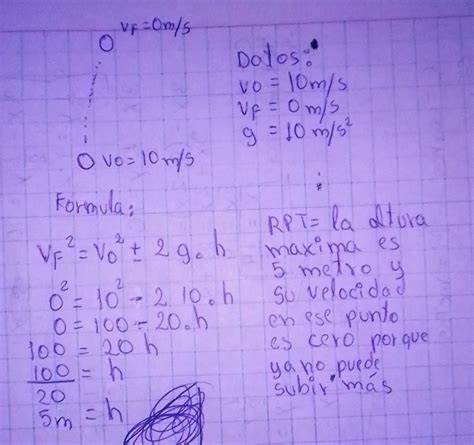 VF=0m/s
Datos:
vo = 10m/s
VF = 0 m/s
g = 10 m/s²
vo = 10 m/s
Formula:
VF² = Vo² ± 2 g. h
0² = 10² - 2.10.h
0 = 100 - 20.h
100 = 20 h
100/20 = h
5m = h
RPT= la altura
maxima es
5 metro y
su velocidad
en ese punto
es cero porque
ya no puede
subir más